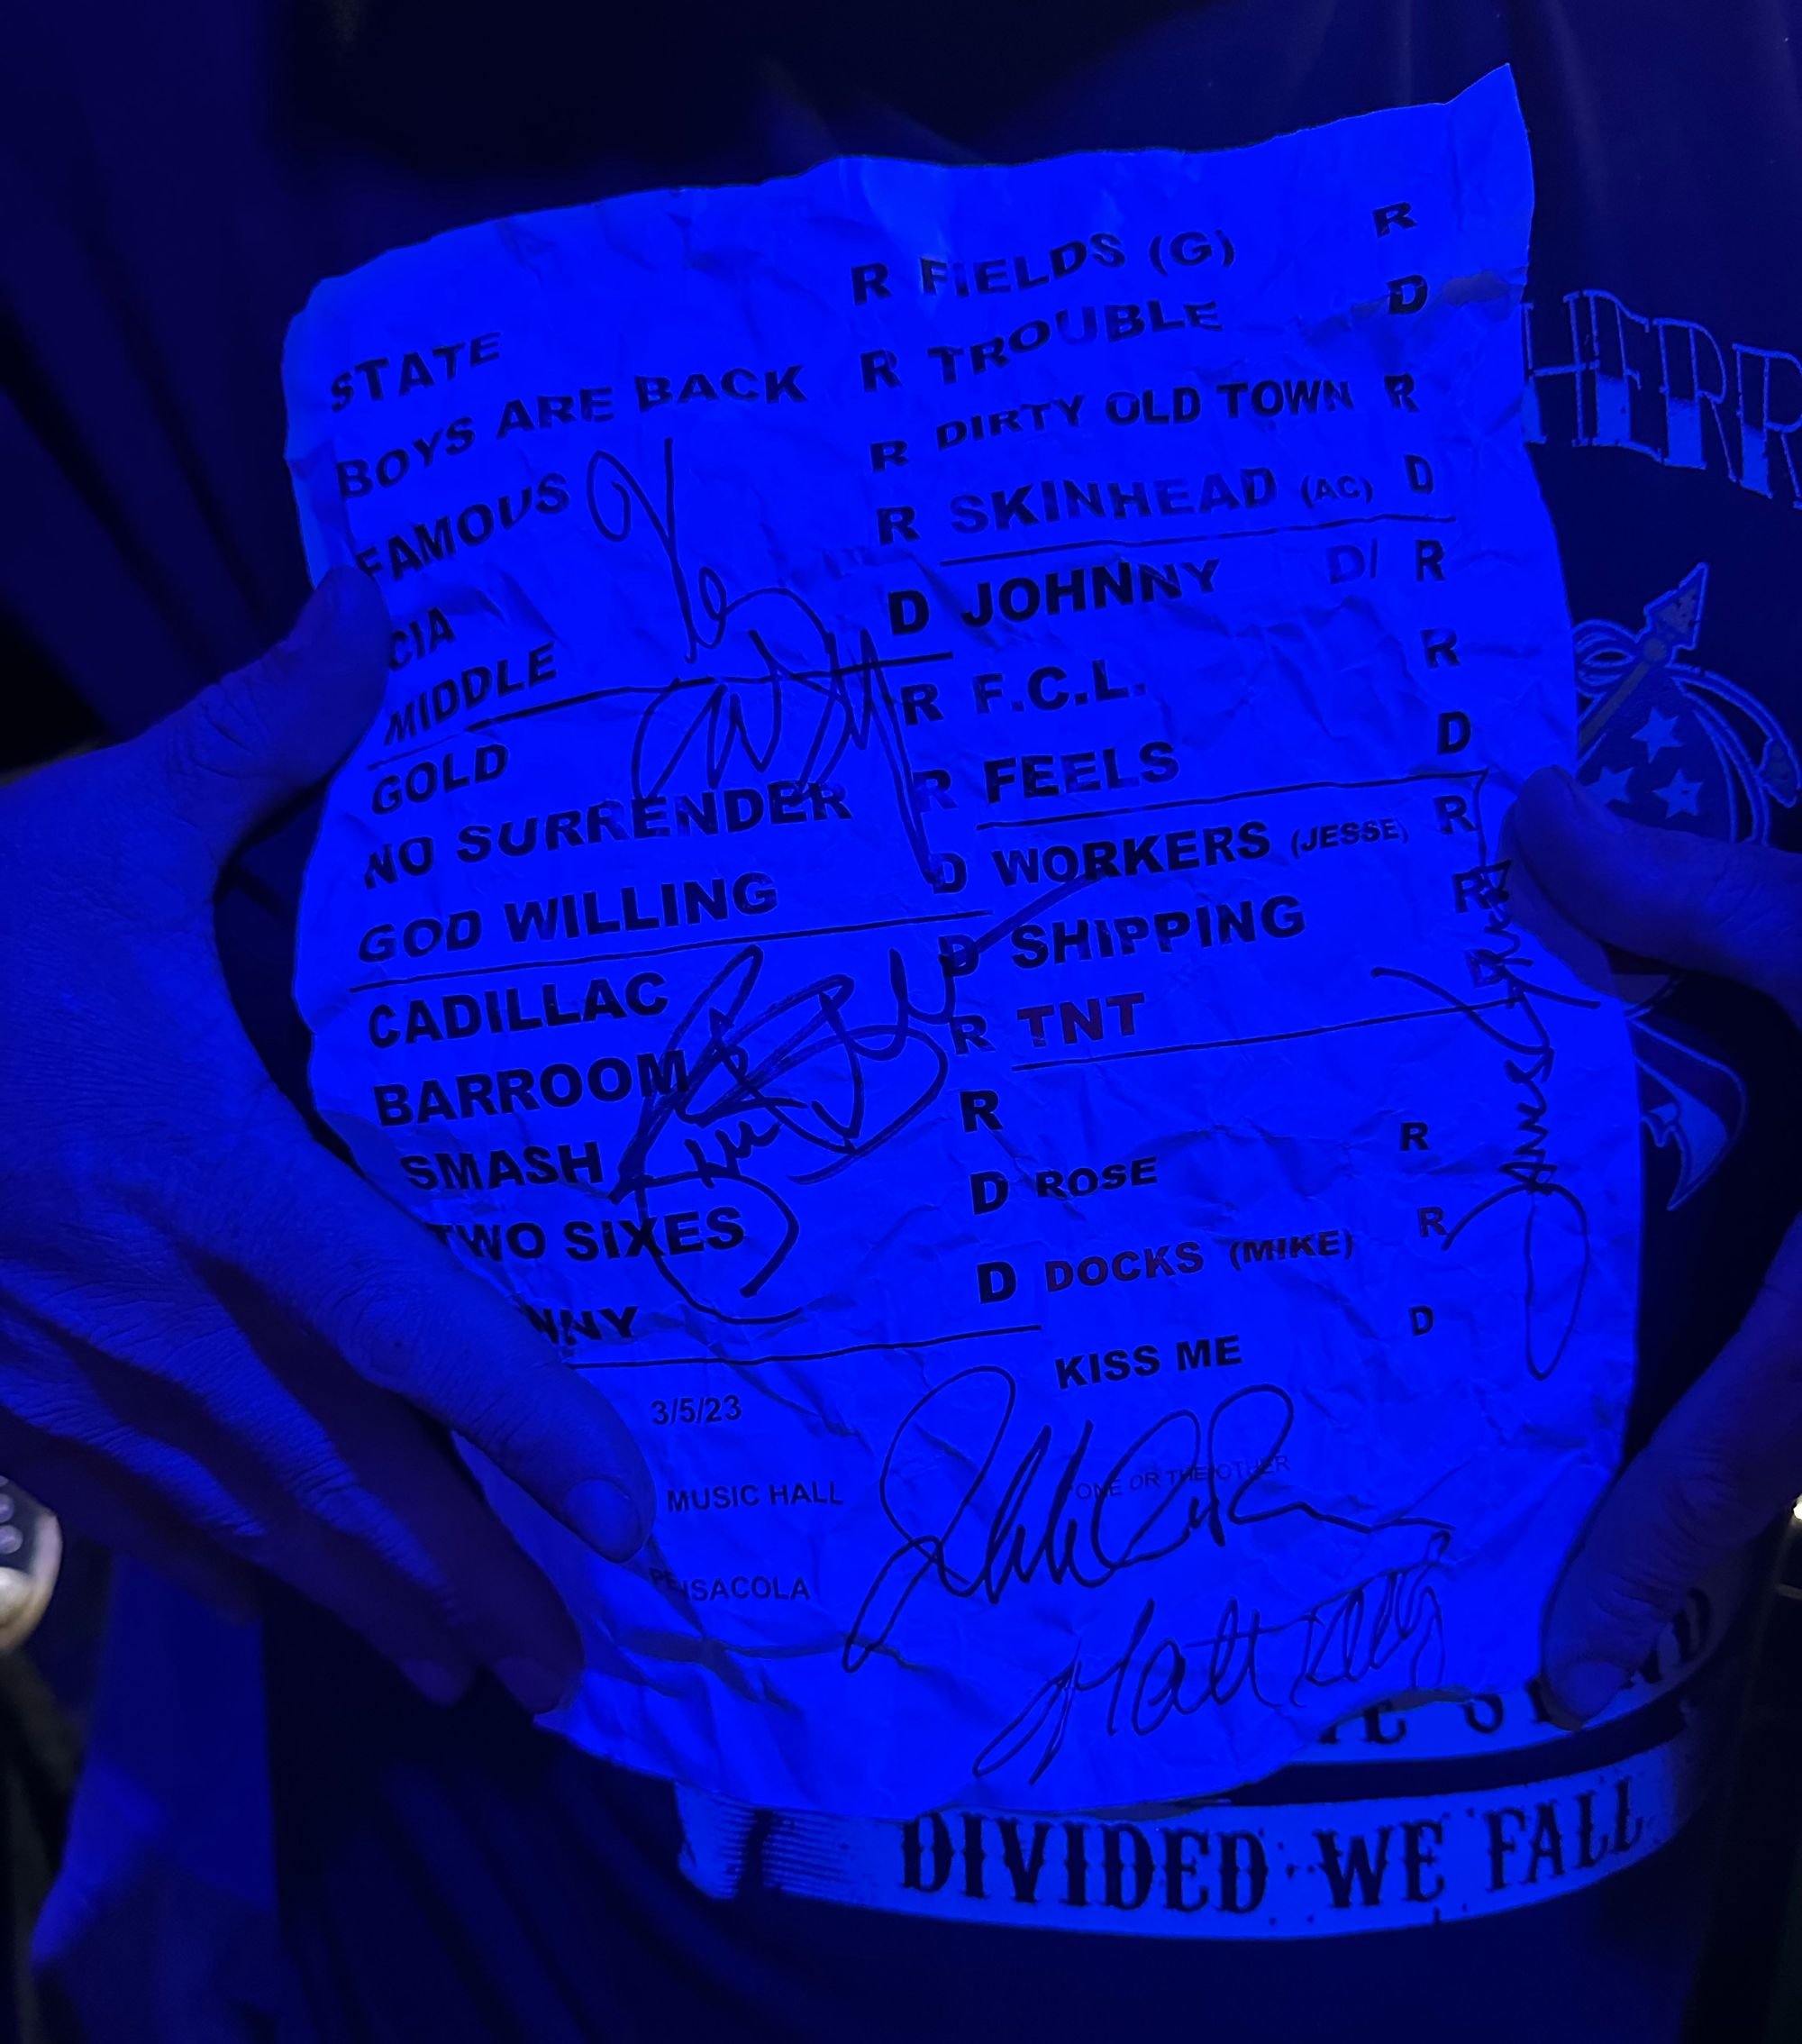 STATE R
BOYS ARE BACK R
FAMOUS R
CIA R
MIDDLE D
GOLD R
NO SURRENDER R
GOD WILLING D
CADILLAC D
BARROOM R
SMASH R
TWO SIXES D
NNY D
3/5/23
MUSIC HALL
PENSACOLA
FIELDS (G) R
TROUBLE D
DIRTY OLD TOWN R
SKINHEAD (AC) D
JOHNNY D/ R
F.C.L. R
FEELS D
WORKERS (JESSE) R
SHIPPING R
TNT D
ROSE R
DOCKS (MIKE) R
KISS ME D
ONE OR THE OTHER
Matt Kelly
HERR
DIVIDED WE FALL